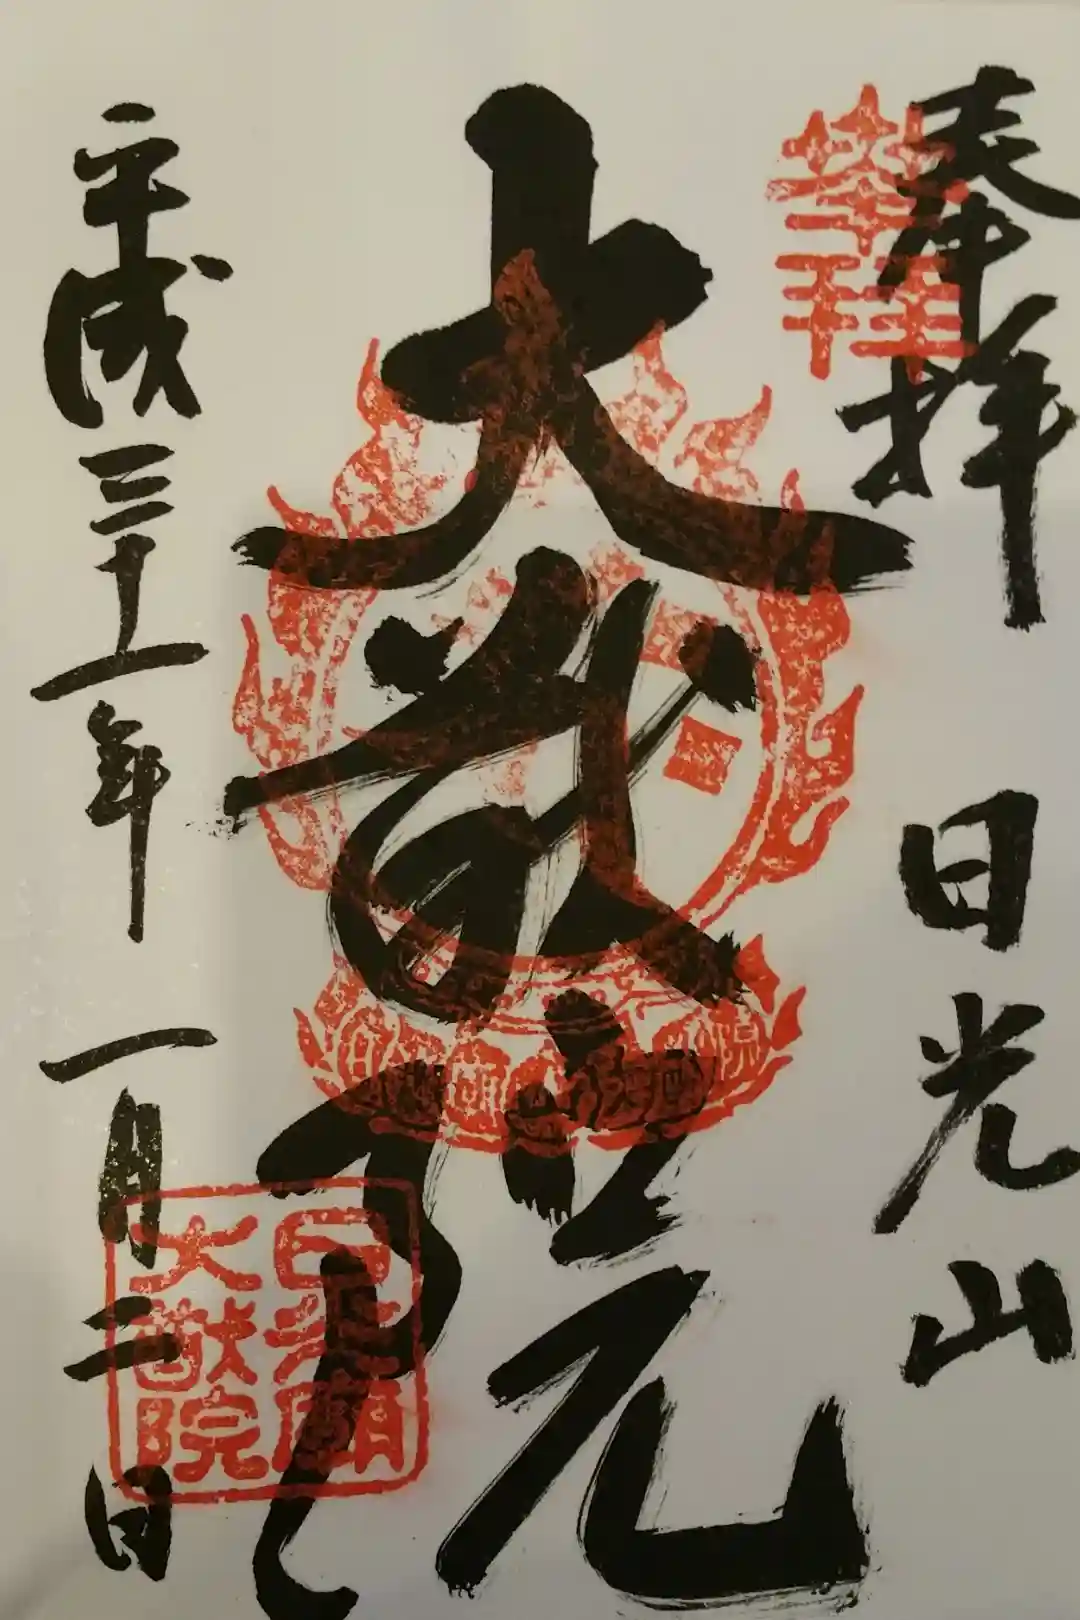 奉拝 日光山
大猷院
平成三十一年 一月二日
日光廟
大猷院